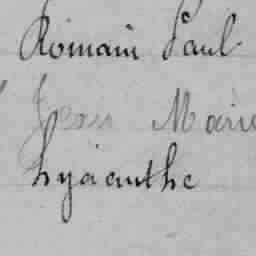 Romain Paul
Jean Marie
hyacinthe